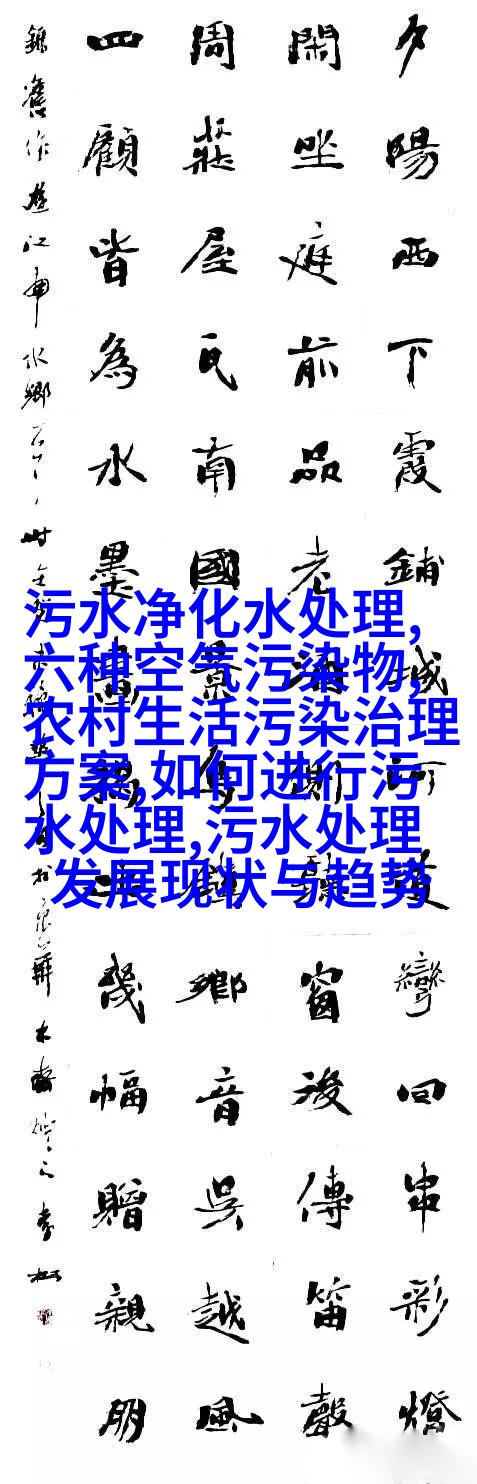 夕陽西下霞鋪城河彎回串彩燈
閑坐庭前品老酒窗後傳笛聲
周莊屋瓦南國景鄉音吳越風
四顧皆為水墨畫幾幅贈親朋
錄舊作遊江南水鄉
污水净化水处理,
六种空气污染物,
农村生活污染治理
方案,如何进行污
水处理,污水处理
发展现状与趋势